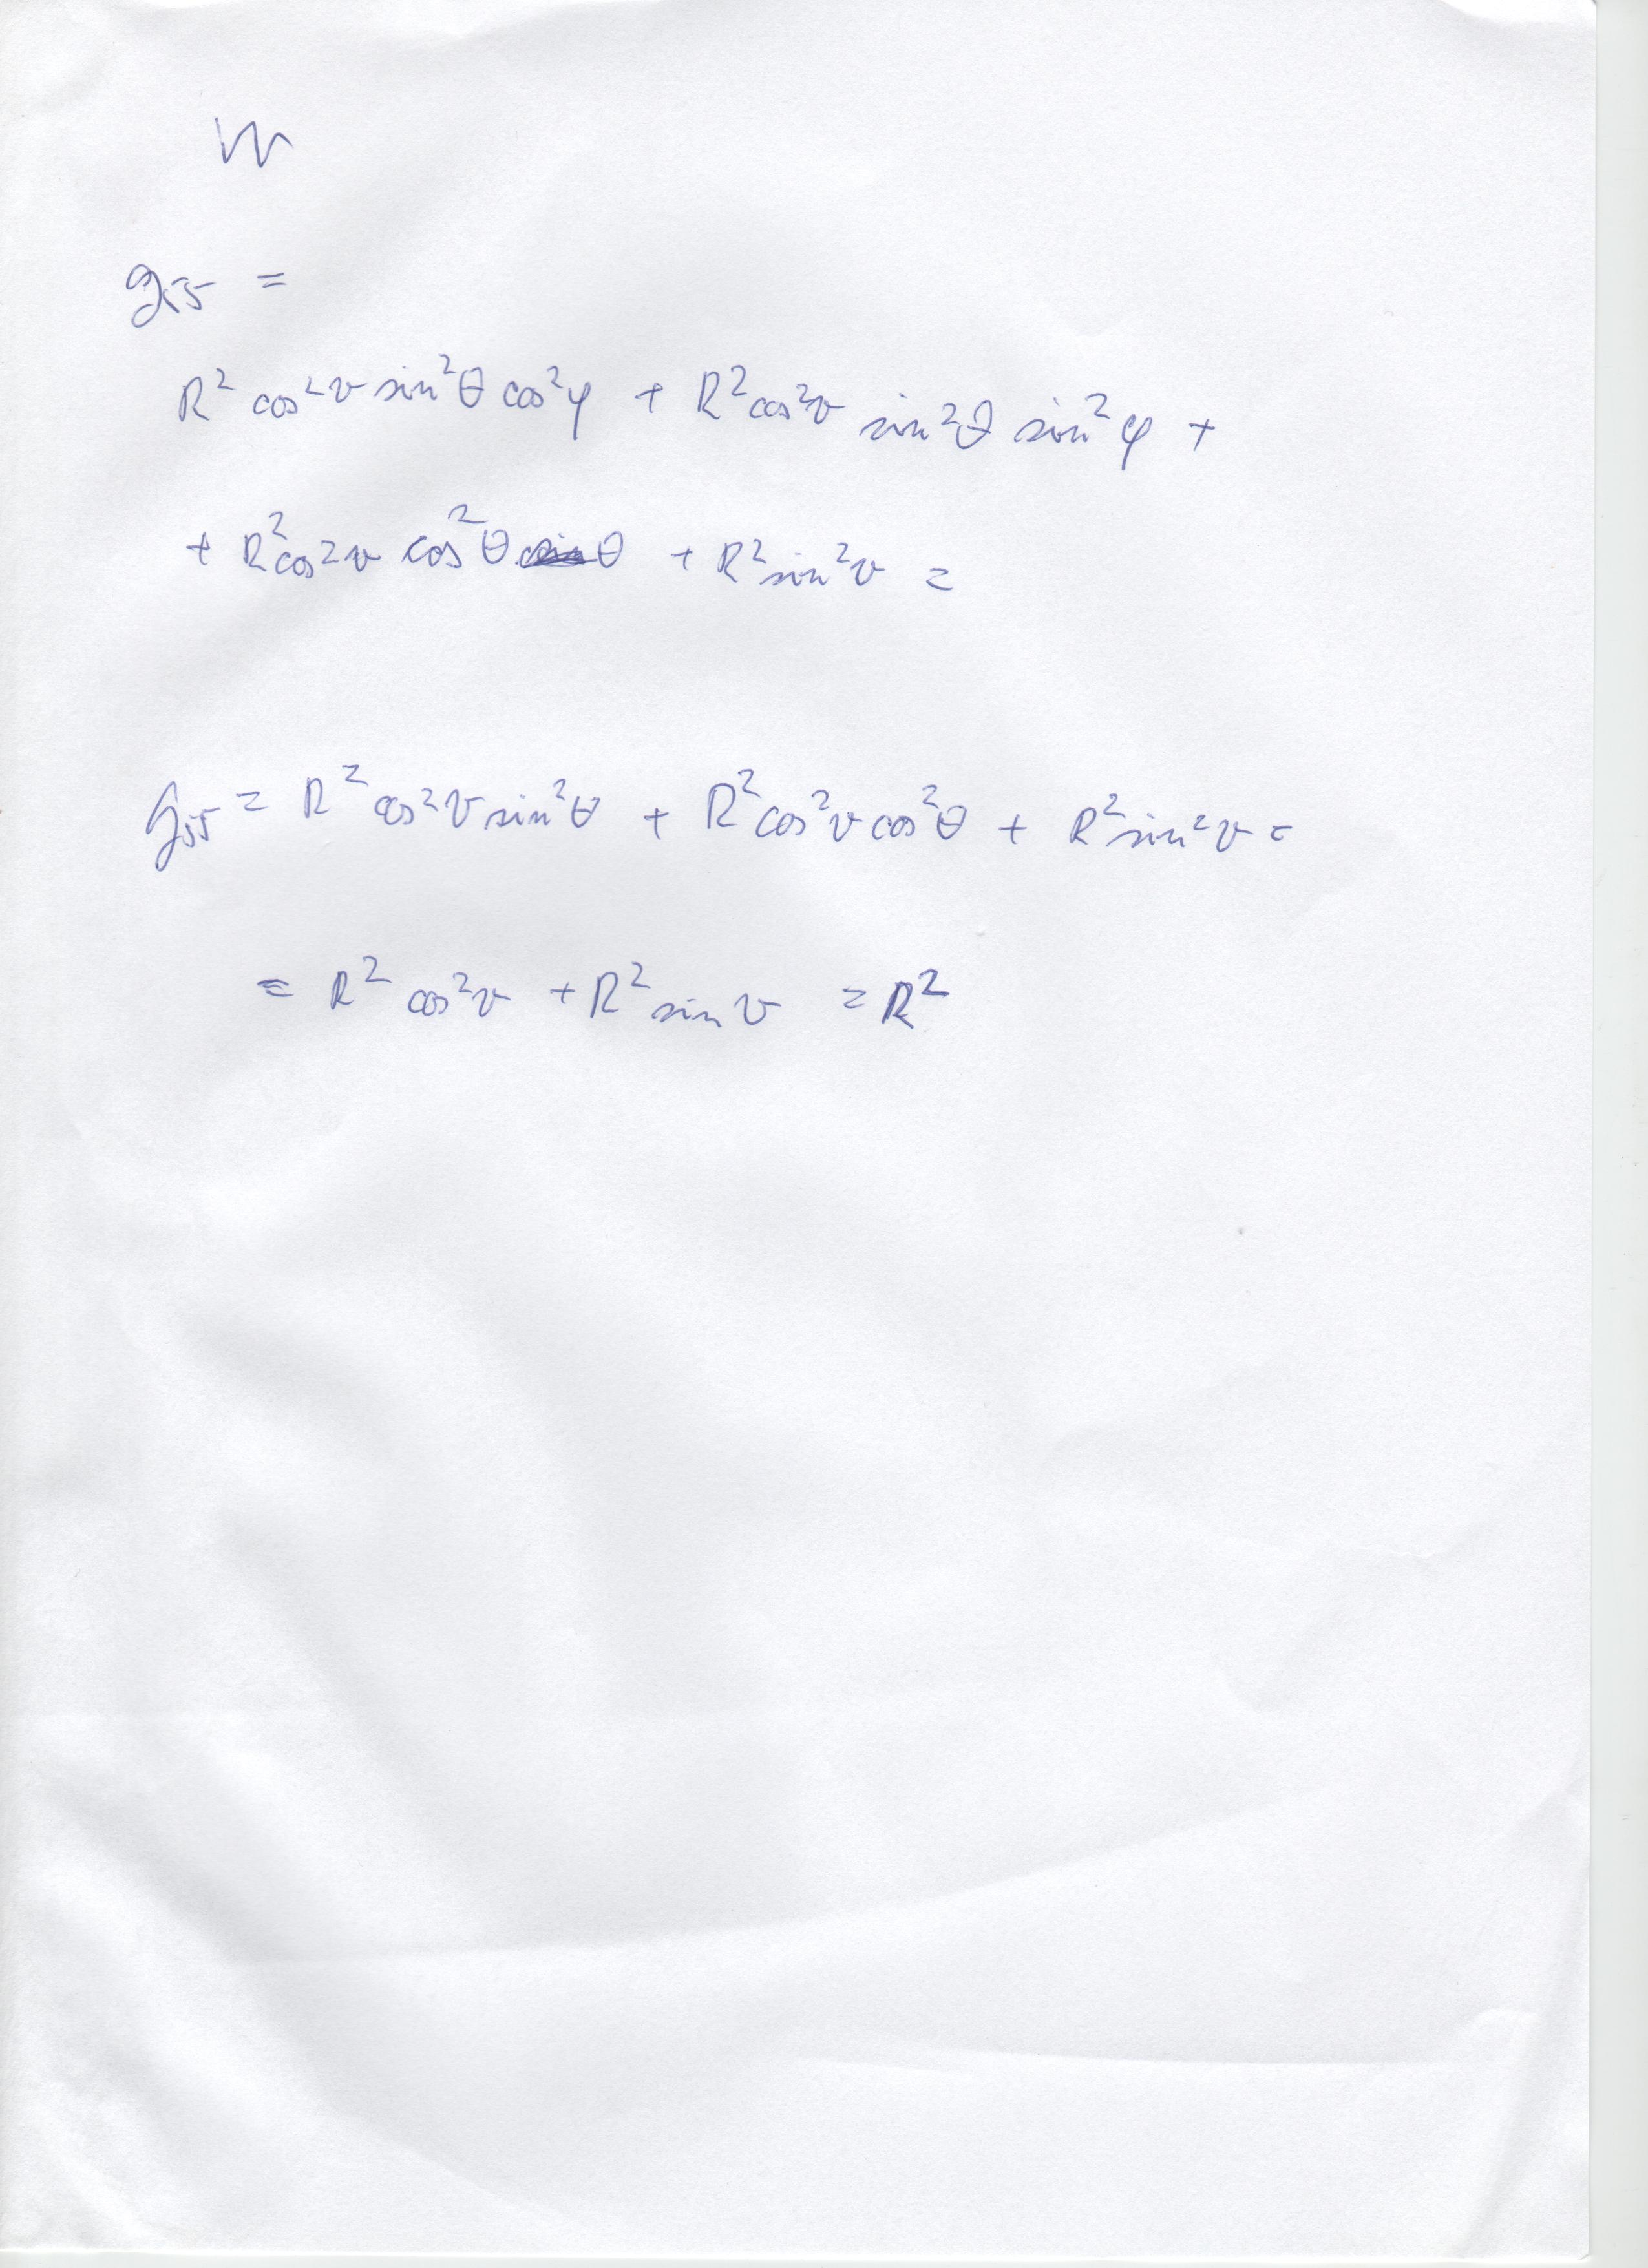 g₅₅ =
R² cos²v sin²θ cos²φ + R² cos²v sin²θ sin²φ +
+ R² cos²v cos²θ θ + R² sin²v =
g₅₅ = R² cos²v sin²θ + R² cos²v cos²θ + R² sin²v =
= R² cos²v + R² sin v = R²